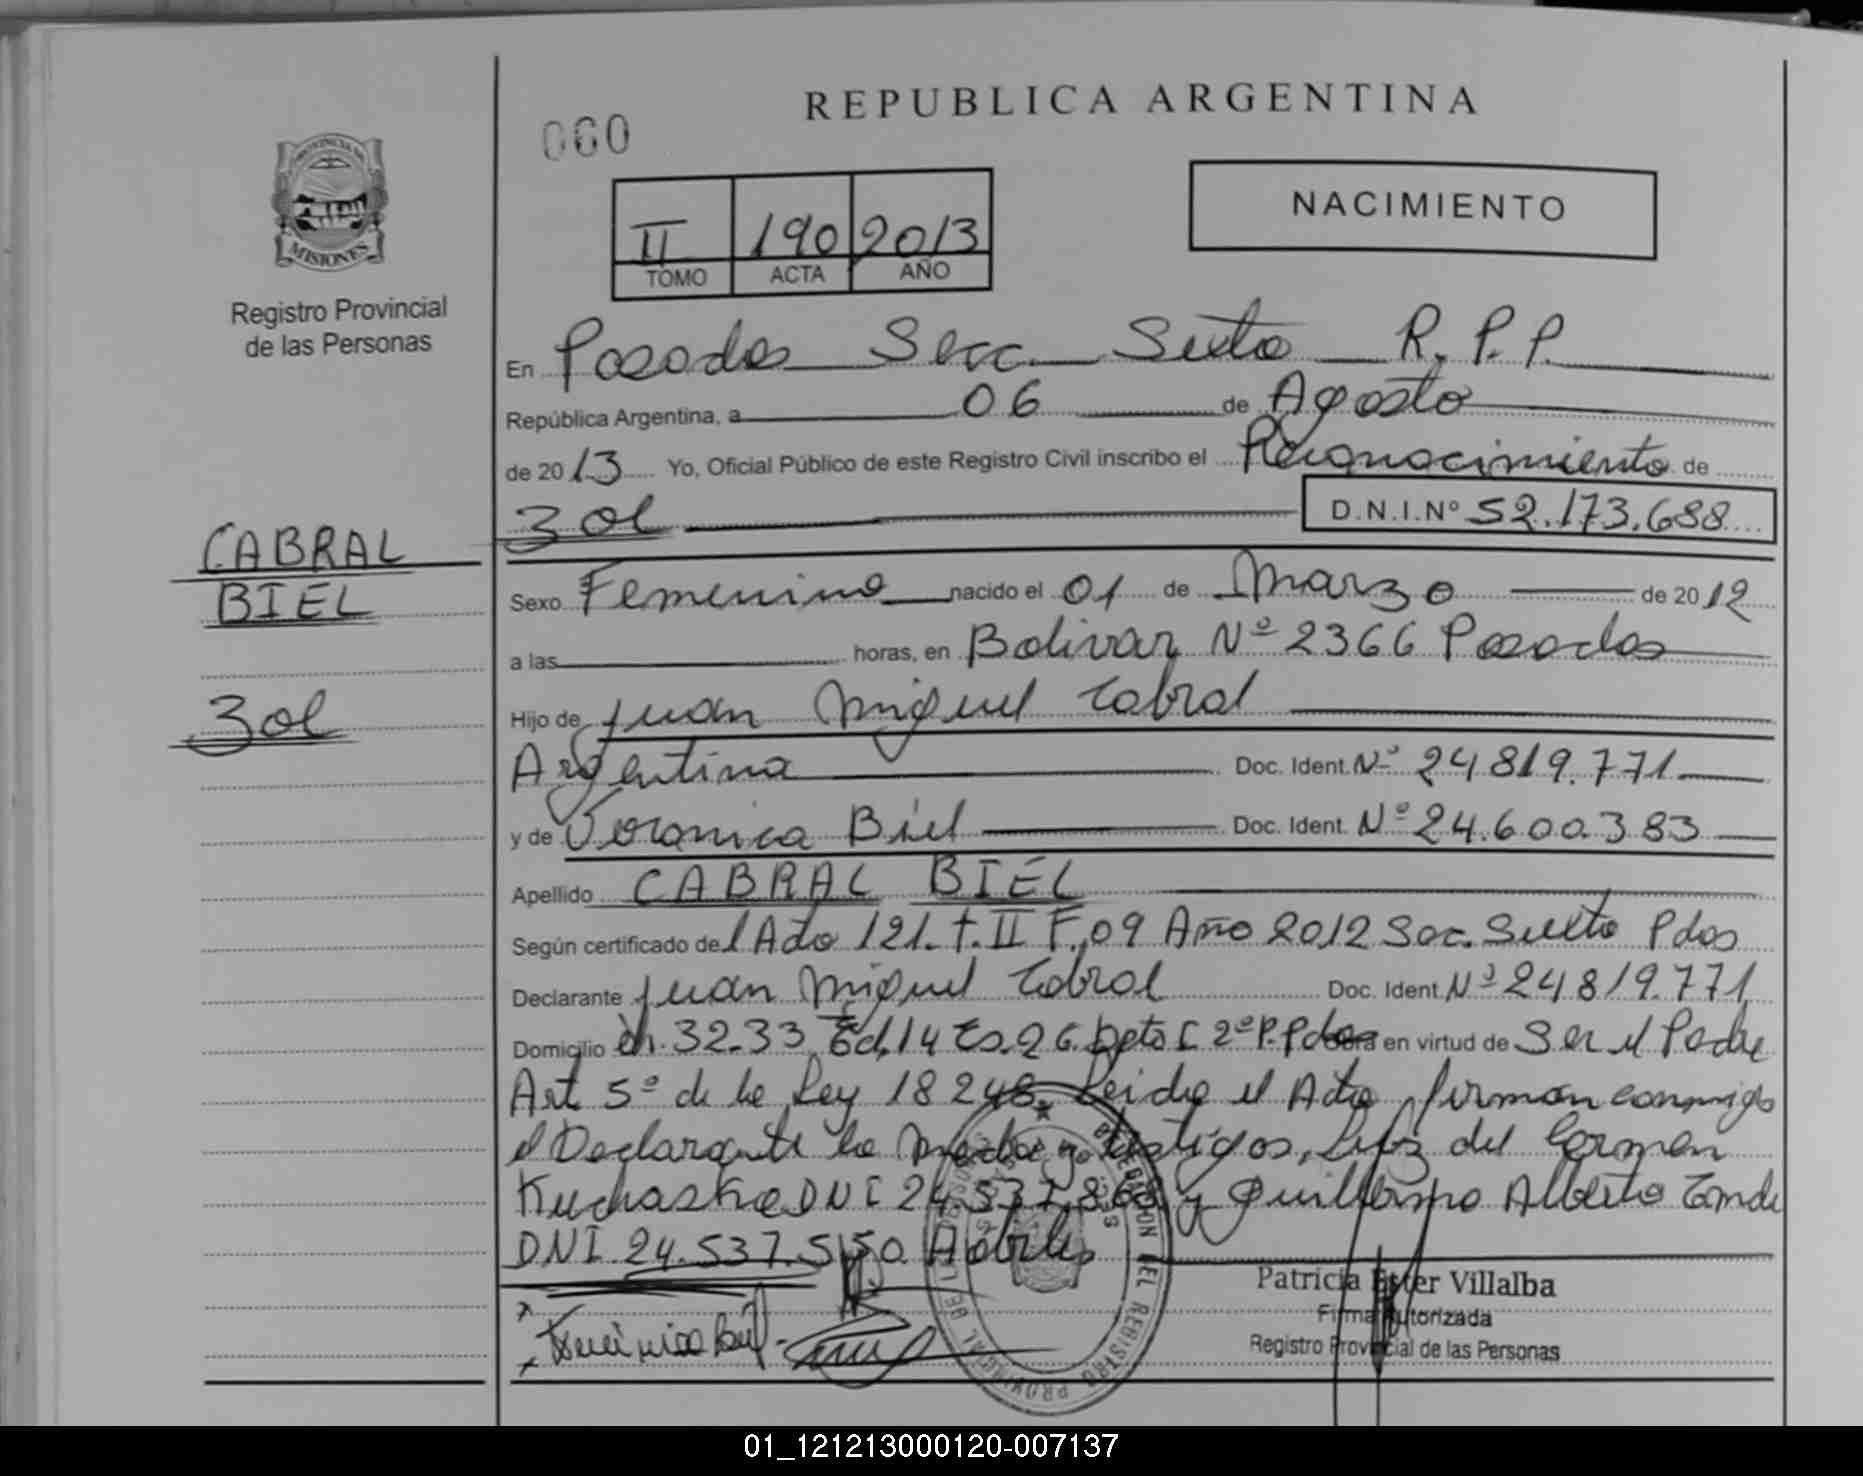 REPUBLICA ARGENTINA
060
NACIMIENTO
II 190 2013
TOMO ACTA AÑO
PROVINCIA DE
MISIONES
Registro Provincial
de las Personas
En Posadas Secc. Sexta R.P.P.
República Argentina, a 06 de Agosto
de 2013 Yo, Oficial Público de este Registro Civil inscribo el Reconocimiento de
Zol D.N.I.Nº 52.173.688
CABRAL
BIEL
Zol
Sexo Femenino nacido el 01 de Marzo de 2012
a las horas, en Bolivar Nº 2366 Posadas
Hijo de Juan Miguel Cabral
Argentina Doc. Ident. Nº 24.819.771
y de Veronica Biel Doc. Ident. Nº 24.600.383
Apellido CABRAL BIEL
Según certificado del Acta 121. t. II F. 09 Año 2012 Sec. Sexta Pdas
Declarante Juan Miguel Cabral Doc. Ident. Nº 24.819.771
Domicilio Ch. 32-33 Ed. 14 Es. 26. Dpto C 2º P. Pdas en virtud de Ser el Padre
Art 5º de la Ley 18248. Leida el Acta, firman conmigo
el Declarante la Madre y testigos, Luz del Carmen
DNI 24.537. y Guillermo Alberto
DNI 24.537.550 Hábiles
Patricia Ester Villalba
Firma Autorizada
Registro Provincial de las Personas
DELEGACION DEL REGISTRO PROVINCIAL DE LAS PERSONAS
01_121213000120-007137